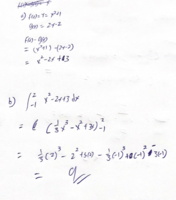 a) f(x) = x²+1
g(x) = 2x-2
f(x) - g(x)
= (x²+1) - (2x-2)
= x² - 2x + 3
b) ∫²₋₁ x² - 2x + 3 dx
= (⅓x³ - x² + 3x)²₋₁
= ⅓(2)³ - 2² + 3(2) - ⅓(-1)³ + (-1)² - 3(-1)
= 9